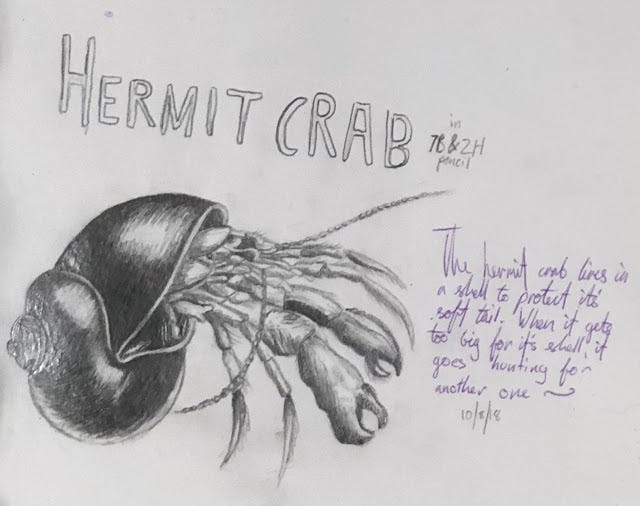 HERMIT CRAB
in
7B & 2H
pencil
The hermit crab lives in
a shell to protect it's
soft tail. When it gets
too big for it's shell, it
goes hunting for
another one ~
10/8/18